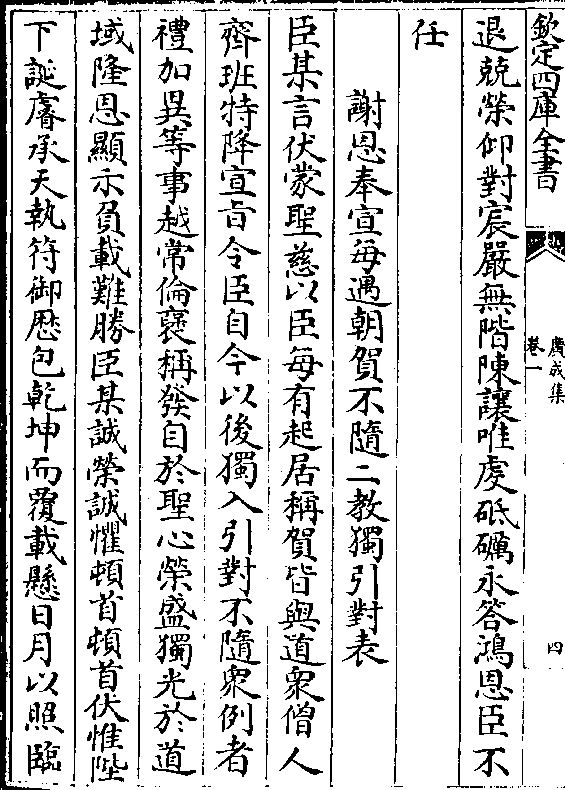 欽定四庫全書
廣成集
卷一
四
退兢榮仰對宸嚴無階陳讓唯虔砥礪永答鴻恩臣不
任
謝恩奉宣每遇朝賀不隨二教獨引對表
臣某言伏蒙聖慈以臣每有起居稱賀皆與道衆僧人
齊班特降宣旨令臣自今以後獨入引對不隨衆例者
禮加異等事越常倫褒稱發自於聖心榮盛獨光於道
域隆恩顯示負載難勝臣某誠榮誠懼頓首頓首伏惟陛
下誕膺承天執符御歴包乾坤而覆載懸日月以照臨